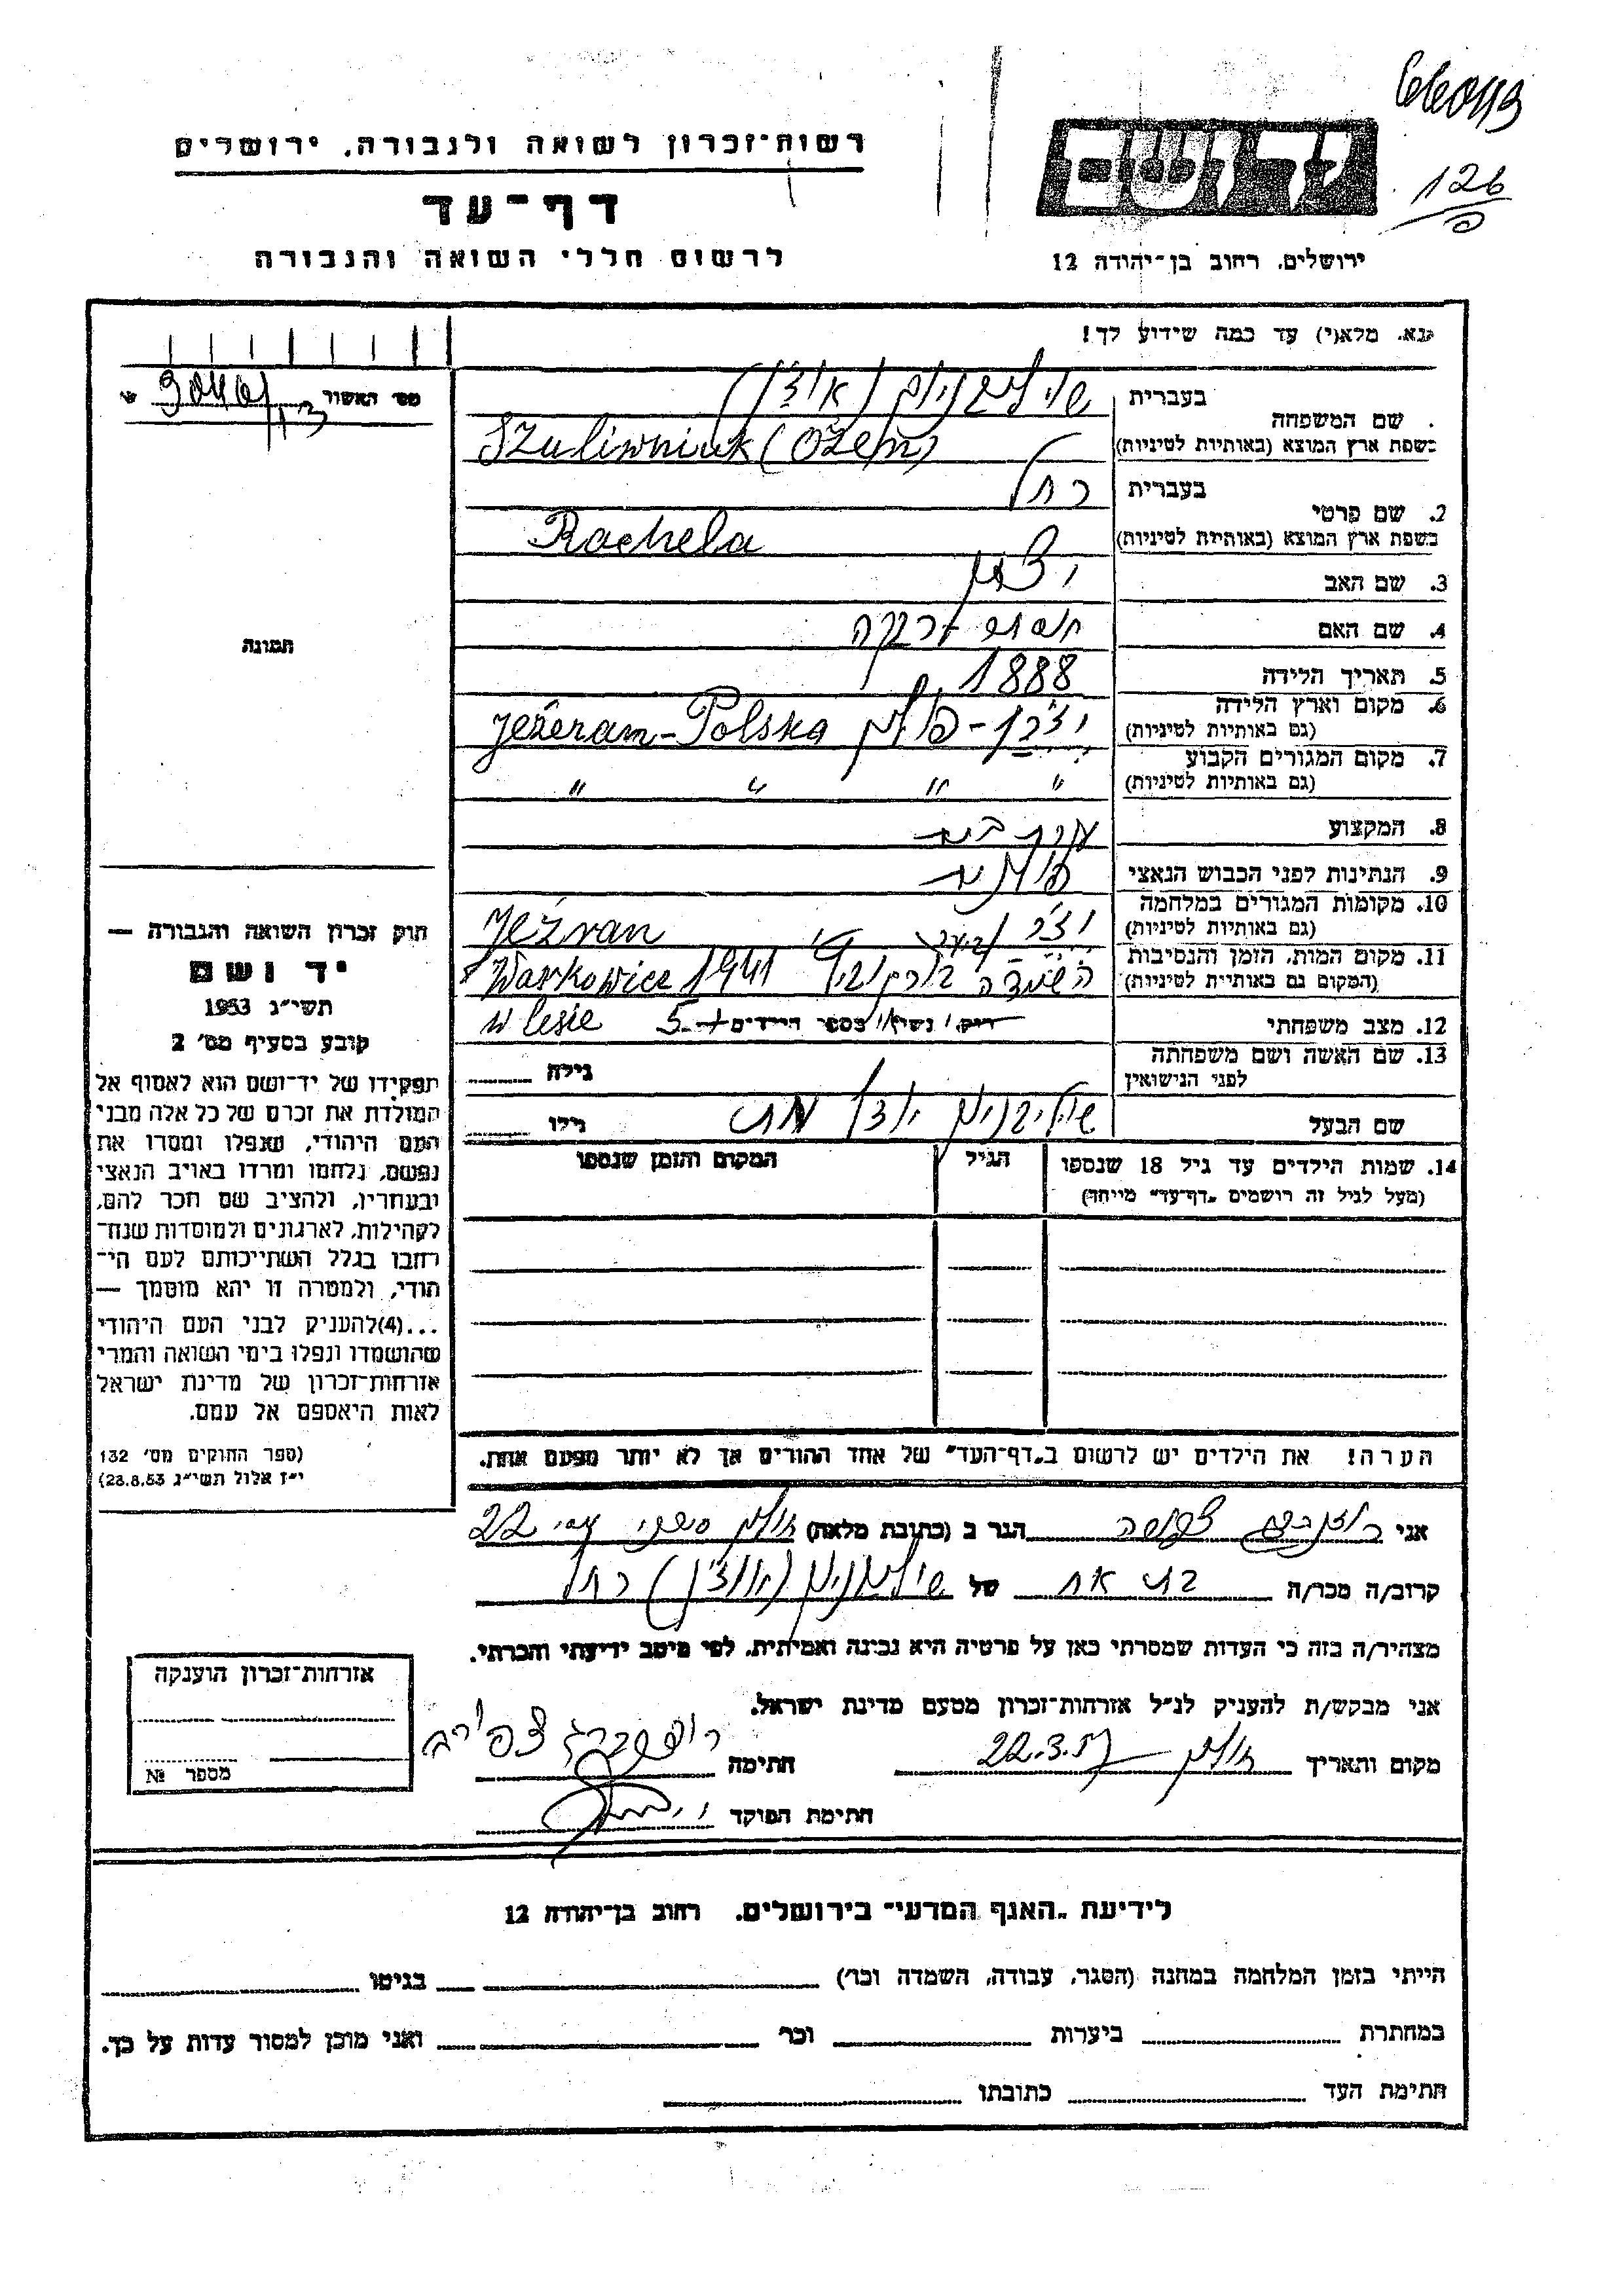 66043
126
יד ושם
רשות-זכרון לשואה ולגבורה, ירושלים
דף-עד
לרשום חללי השואה והגבורה
ירושלים, רחוב בן-יהודה 12
נא, מלא(י) עד כמה שידוע לך!
מס' האשור
שם המשפחה
בעברית
בשפת ארץ המוצא (באותיות לטיניות) Szuliwniuk (Ożeń)
2. שם פרטי
בעברית רחל
בשפת ארץ המוצא (באותיות לטיניות) Rachela
3. שם האב
4. שם האם
5. תאריך הלידה 1888
6. מקום וארץ הלידה
(גם באותיות לטיניות) Jeżeran - Polska
7. מקום המגורים הקבוע
(גם באותיות לטיניות) " " " "
8. המקצוע עקרת בית
9. הנתינות לפני הכבוש הנאצי פולנית
10. מקומות המגורים במלחמה
(גם באותיות לטיניות) Jeżran
11. מקום המות, הזמן והנסיבות
(המקום גם באותיות לטיניות) Warkowice 1941
12. מצב משפחתי רווק/ נשוי/ מספר הילדים 5 w lesie
13. שם האשה ושם משפחתה
לפני הנישואין גילה
שם הבעל גילו
14. שמות הילדים עד גיל 18 שנספו
(מעל לגיל זה רושמים "דף-עד" מיוחד)
הגיל
המקום והזמן שנספו
הערה! את הילדים יש לרשום ב"דף-העד" של אחד ההורים אך לא יותר מפעם אחת.
תמונה
חוק זכרון השואה והגבורה —
יד ושם
תשי"ג 1953
קובע בסעיף מס' 2
תפקידו של יד-ושם הוא לאסוף אל
המולדת את זכרם של כל אלה מבני
העם היהודי, שנפלו ומסרו את
נפשם, נלחמו ומרדו באויב הנאצי
ובעוזריו, ולהציב שם וזכר להם,
לקהילות, לארגונים ולמוסדות שנח-
רחבו בגלל השתייכותם לעם הי-
הודי, ולמטרה זו יהא מוסמך —
...(4)להעניק לבני העם היהודי
שהושמדו ונפלו בימי השואה והמרי
אזרחות-זכרון של מדינת ישראל
לאות היאספם אל עמם.
(ספר החוקים מס' 132
י"ז אלול תשי"ג 23.8.53)
אני רוזנברג צפורה הגר ב (כתובת מלאה) חולון 22
קרוב/ה מכר/ה בת אח של רחל
מצהיר/ה בזה כי העדות שמסרתי כאן על פרטיה היא נכונה ואמיתית, לפי מיטב ידיעתי והכרתי.
אני מבקש/ת להעניק לנ"ל אזרחות-זכרון מטעם מדינת ישראל.
מקום ותאריך חולון 22.3.57 חתימה רוזנברג צפורה
חתימת הפוקד
אזרחות-זכרון הוענקה
מספר №
לידיעת "האגף המדעי" בירושלים, רחוב בן-יהודה 12
הייתי בזמן המלחמה במחנה (הסגר, עבודה, השמדה וכו') בגיטו
במחתרת ביערות וכו' ואני מוכן למסור עדות על כך.
חתימת העד כתובתו